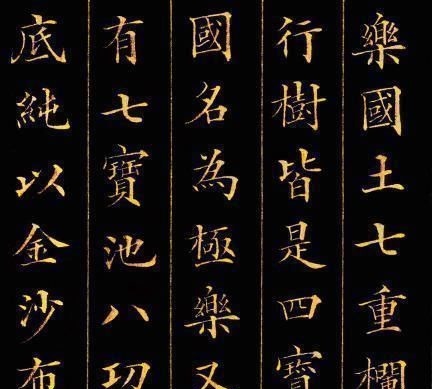 樂國土七重欄
行樹皆是四寶
國名為極樂又
有七寶池八功
底純以金沙布